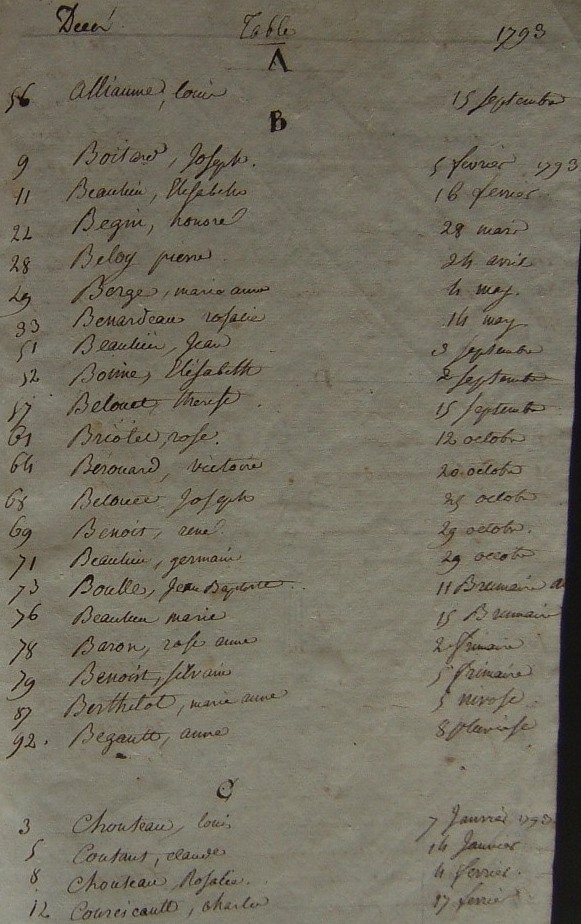 Decés Table 1793
A
56 alliaume, louis 15 septembre
B
9 Boitard, Joseph. 5 fevrier 1793
11 Beaulieu, Elisabeth 16 fevrier
22 Begin, honoré 28 mars
28 Beloy pierre 24 avril
29 Berge, marie anne 4 may.
33 Benardeau rosalie 14 may
51 Beaulieu, Jean 3 septembre
52 Boinne, Elisabeth 2 septembre
57 Belouet, therese 15 septembre
61 Briolet, rose. 12 octobre
64 Berouard, victoire 20 octobre
68 Belouet Joseph 25 octobre
69 Benoit, rené. 29 octobre.
71 Beaulieu, germain 29 octobre
73 Boulle, Jean Baptiste. 11 Brumaire
76 Beaulieu marie 15 Brumaire
78 Baron, rose anne 2 frimaire
79 Benoist, silvain 5 frimaire
87 Berthelot, marie anne 5 nivose
92. Begault, anne 8 pluviose
C
3 Chouteau, louis 7 Janvier 1793
5 Coutans, claude 14 Janvier
8 Chouteau Rosalie. 4 fevrier.
12 charles 17 fevrier